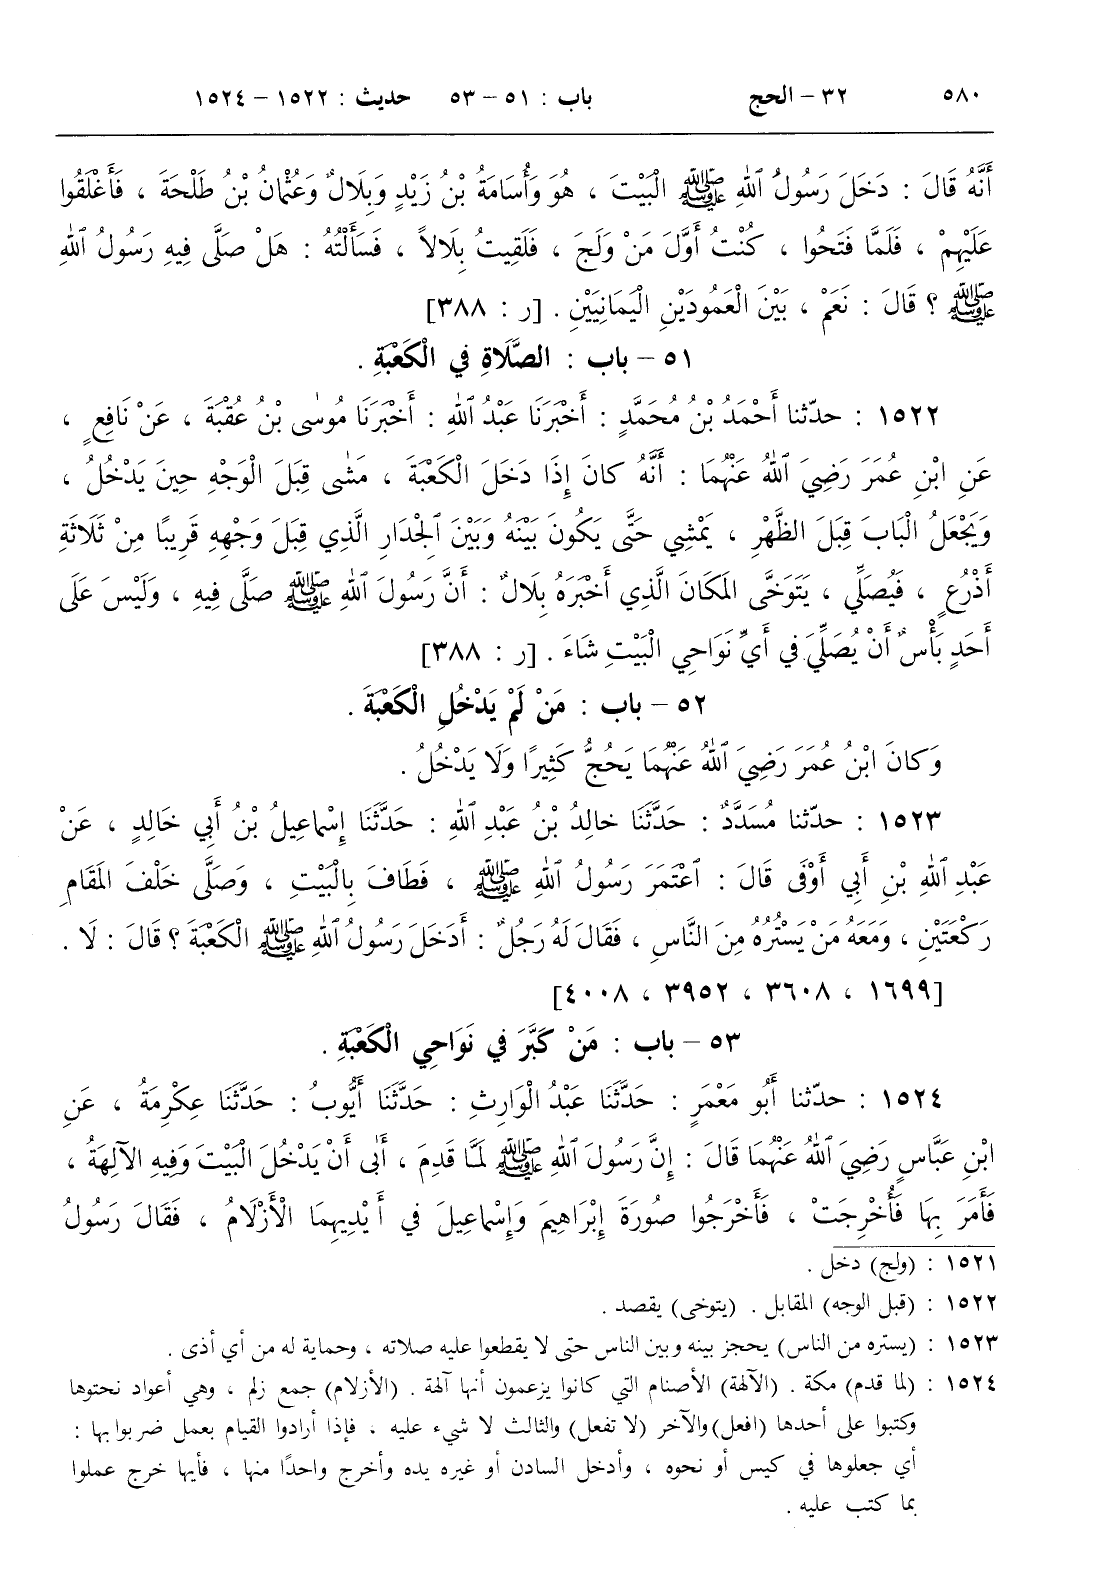 ٥٨٠ ٣٢ – الحج باب : ٥١ – ٥٣ حديث : ١٥٢٢ – ١٥٢٤
أَنَّهُ قَالَ : دَخَلَ رَسُولُ ٱللهِ ﷺ الْبَيْتَ ، هُوَ وَأُسَامَةُ بْنُ زَيْدٍ وَبِلَالٌ وَعُثْمَانُ بْنُ طَلْحَةَ ، فَأَغْلَقُوا
عَلَيْهِمْ ، فَلَمَّا فَتَحُوا ، كُنْتُ أَوَّلَ مَنْ وَلَجَ ، فَلَقِيتُ بِلَالاً ، فَسَأَلْتُهُ : هَلْ صَلَّى فِيهِ رَسُولُ ٱللهِ
ﷺ ؟ قَالَ : نَعَمْ ، بَيْنَ الْعَمُودَيْنِ الْيَمَانِيَيْنِ . [ر : ٣٨٨]
٥١ – باب : الصَّلَاةِ فِي الْكَعْبَةِ .
١٥٢٢ : حدّثنا أَحْمَدُ بْنُ مُحَمَّدٍ : أَخْبَرَنَا عَبْدُ ٱللهِ : أَخْبَرَنَا مُوسٰى بْنُ عُقْبَةَ ، عَنْ نَافِعٍ ،
عَنِ ابْنِ عُمَرَ رَضِيَ ٱللهُ عَنْهُمَا : أَنَّهُ كانَ إِذَا دَخَلَ الْكَعْبَةَ ، مَشٰى قِبَلَ الْوَجْهِ حِينَ يَدْخُلُ ،
وَيَجْعَلُ الْبَابَ قِبَلَ الظَّهْرِ ، يَمْشِي حَتَّى يَكُونَ بَيْنَهُ وَبَيْنَ الْجِدَارِ الَّذِي قِبَلَ وَجْهِهِ قَرِيبًا مِنْ ثَلَاثَةِ
أَذْرُعٍ ، فَيُصَلِّي ، يَتَوَخَّى الْمَكَانَ الَّذِي أَخْبَرَهُ بِلَالٌ : أَنَّ رَسُولَ ٱللهِ ﷺ صَلَّى فِيهِ ، وَلَيْسَ عَلَى
أَحَدٍ بَأْسٌ أَنْ يُصَلِّيَ فِي أَيِّ نَوَاحِي الْبَيْتِ شَاءَ . [ر : ٣٨٨]
٥٢ – باب : مَنْ لَمْ يَدْخُلِ الْكَعْبَةَ .
وَكانَ ابْنُ عُمَرَ رَضِيَ ٱللهُ عَنْهُمَا يَحُجُّ كَثِيرًا وَلَا يَدْخُلُ .
١٥٢٣ : حدّثنا مُسَدَّدٌ : حَدَّثَنَا خالِدُ بْنُ عَبْدِ ٱللهِ : حَدَّثَنَا إِسْمَاعِيلُ بْنُ أَبِي خَالِدٍ ، عَنْ
عَبْدِ ٱللهِ بْنِ أَبِي أَوْفَى قَالَ : ٱعْتَمَرَ رَسُولُ ٱللهِ ﷺ ، فَطَافَ بِالْبَيْتِ ، وَصَلَّى خَلْفَ الْمَقَامِ
رَكْعَتَيْنِ ، وَمَعَهُ مَنْ يَسْتُرُهُ مِنَ النَّاسِ ، فَقَالَ لَهُ رَجُلٌ : أَدَخَلَ رَسُولُ ٱللهِ ﷺ الْكَعْبَةَ ؟ قالَ : لَا .
[١٦٩٩ ، ٣٦٠٨ ، ٣٩٥٢ ، ٤٠٠٨]
٥٣ – باب : مَنْ كَبَّرَ فِي نَوَاحِي الْكَعْبَةِ .
١٥٢٤ : حدّثنا أَبُو مَعْمَرٍ : حَدَّثَنَا عَبْدُ الْوَارِثِ : حَدَّثَنَا أَيُّوبُ : حَدَّثَنَا عِكْرِمَةُ ، عَنِ
ابْنِ عَبَّاسٍ رَضِيَ ٱللهُ عَنْهُمَا قَالَ : إِنَّ رَسُولَ ٱللهِ ﷺ لَمَّا قَدِمَ ، أَبٰى أَنْ يَدْخُلَ الْبَيْتَ وَفِيهِ الْآلِهَةُ ،
فَأَمَرَ بِهَا فَأُخْرِجَتْ ، فَأَخْرَجُوا صُورَةَ إِبْرَاهِيمَ وَإِسْمَاعِيلَ فِي أَيْدِيهِمَا الْأَزْلَامُ ، فَقَالَ رَسُولُ
١٥٢١ : (ولج) دخل .
١٥٢٢ : (قبل الوجه) المقابل . (يتوخى) يقصد .
١٥٢٣ : (يستره من الناس) يحجز بينه وبين الناس حتى لا يقطعوا عليه صلاته ، وحماية له من أي أذى .
١٥٢٤ : (لما قدم) مكة . (الآلهة) الأصنام التي كانوا يزعمون أنها آلهة . (الأزلام) جمع زلم ، وهي أعواد نحتوها
وكتبوا على أحدها (افعل) والآخر (لا تفعل) والثالث لا شيء عليه ، فإذا أرادوا القيام بعمل ضربوا بها :
أي جعلوها في كيس أو نحوه ، وأدخل السادن أو غيره يده وأخرج واحدًا منها ، فأيها خرج عملوا
بما كتب عليه .